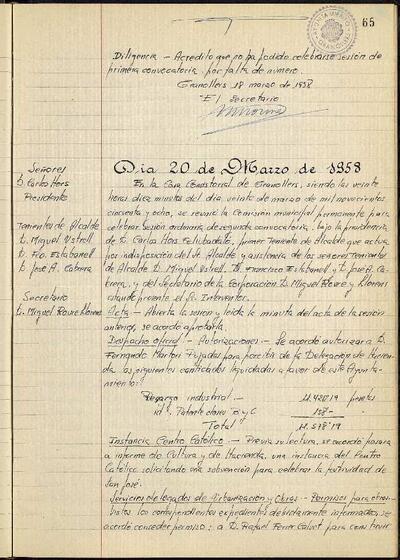 65
AYUNTAMIENTO
GRANOLLERS
Diligencia - Acredito que no ha podido celebrarse sesión de
primera convocatoria por falta de número.
Granollers 18 marzo de 1958
El Secretario
Señores
D. Carlos Hors
Presidente
Tenientes de Alcalde
D. Miguel Ustrell
D. Fco. Estabanell
D. José A. Cabrera
Secretario
D. Miguel Roure Llorens
Dia 20 de Marzo de 1958
En la Casa Consistorial de Granollers, siendo las veinte
horas diez minutos del dia veinte de marzo de mil novecientos
cincuenta y ocho, se reunió la Comisión municipal permanente para
celebrar sesión ordinaria de segunda convocatoria, bajo la presidencia
de D. Carlos Hors, primer Teniente de Alcalde que actua
por indisposición del Sr. Alcalde y asistencia de los señores Tenientes
de Alcalde D. Miguel Ustrell, D. Francisco Estabanell y D. José A. Ca-
brera, y del Secretario de la Corporación D. Miguel Roure y Llorens
estando presente el Sr. Interventor.
Acta - Abierta la sesión y leida la minuta del acta de la sesión
anterior, se acordó aprobarla.
Despacho Oficial - Autorizaciones - Se acordó autorizar a D.
Fernando Martori Pujadas para percibir de la Delegación de Hacien-
da las siguientes cantidades liquidadas a favor de este Ayunta-
miento:
Recargo industrial pesetas
id. Patente clases B y C
Total
Instancia Centro Católico - Previa su lectura, se acordó pasara
a informe de Cultura y de Hacienda, una instancia del Centro
Católico solicitando una subvención para celebrar la festividad de
san José.
Servicios delegados de Urbanización y Obras - Permisos para obras -
Vistos los correspondientes expedientes debidamente informados, se
acordó conceder permiso: a D. Rafael Ferrer Calvet para construir